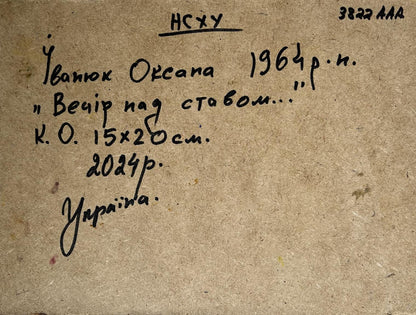 НСХУ
3822 ААА
Іванюк Оксана 1964 р.н.
"Вечір над ставом..."
К. О. 15х20 см.
2024р.
Україна.